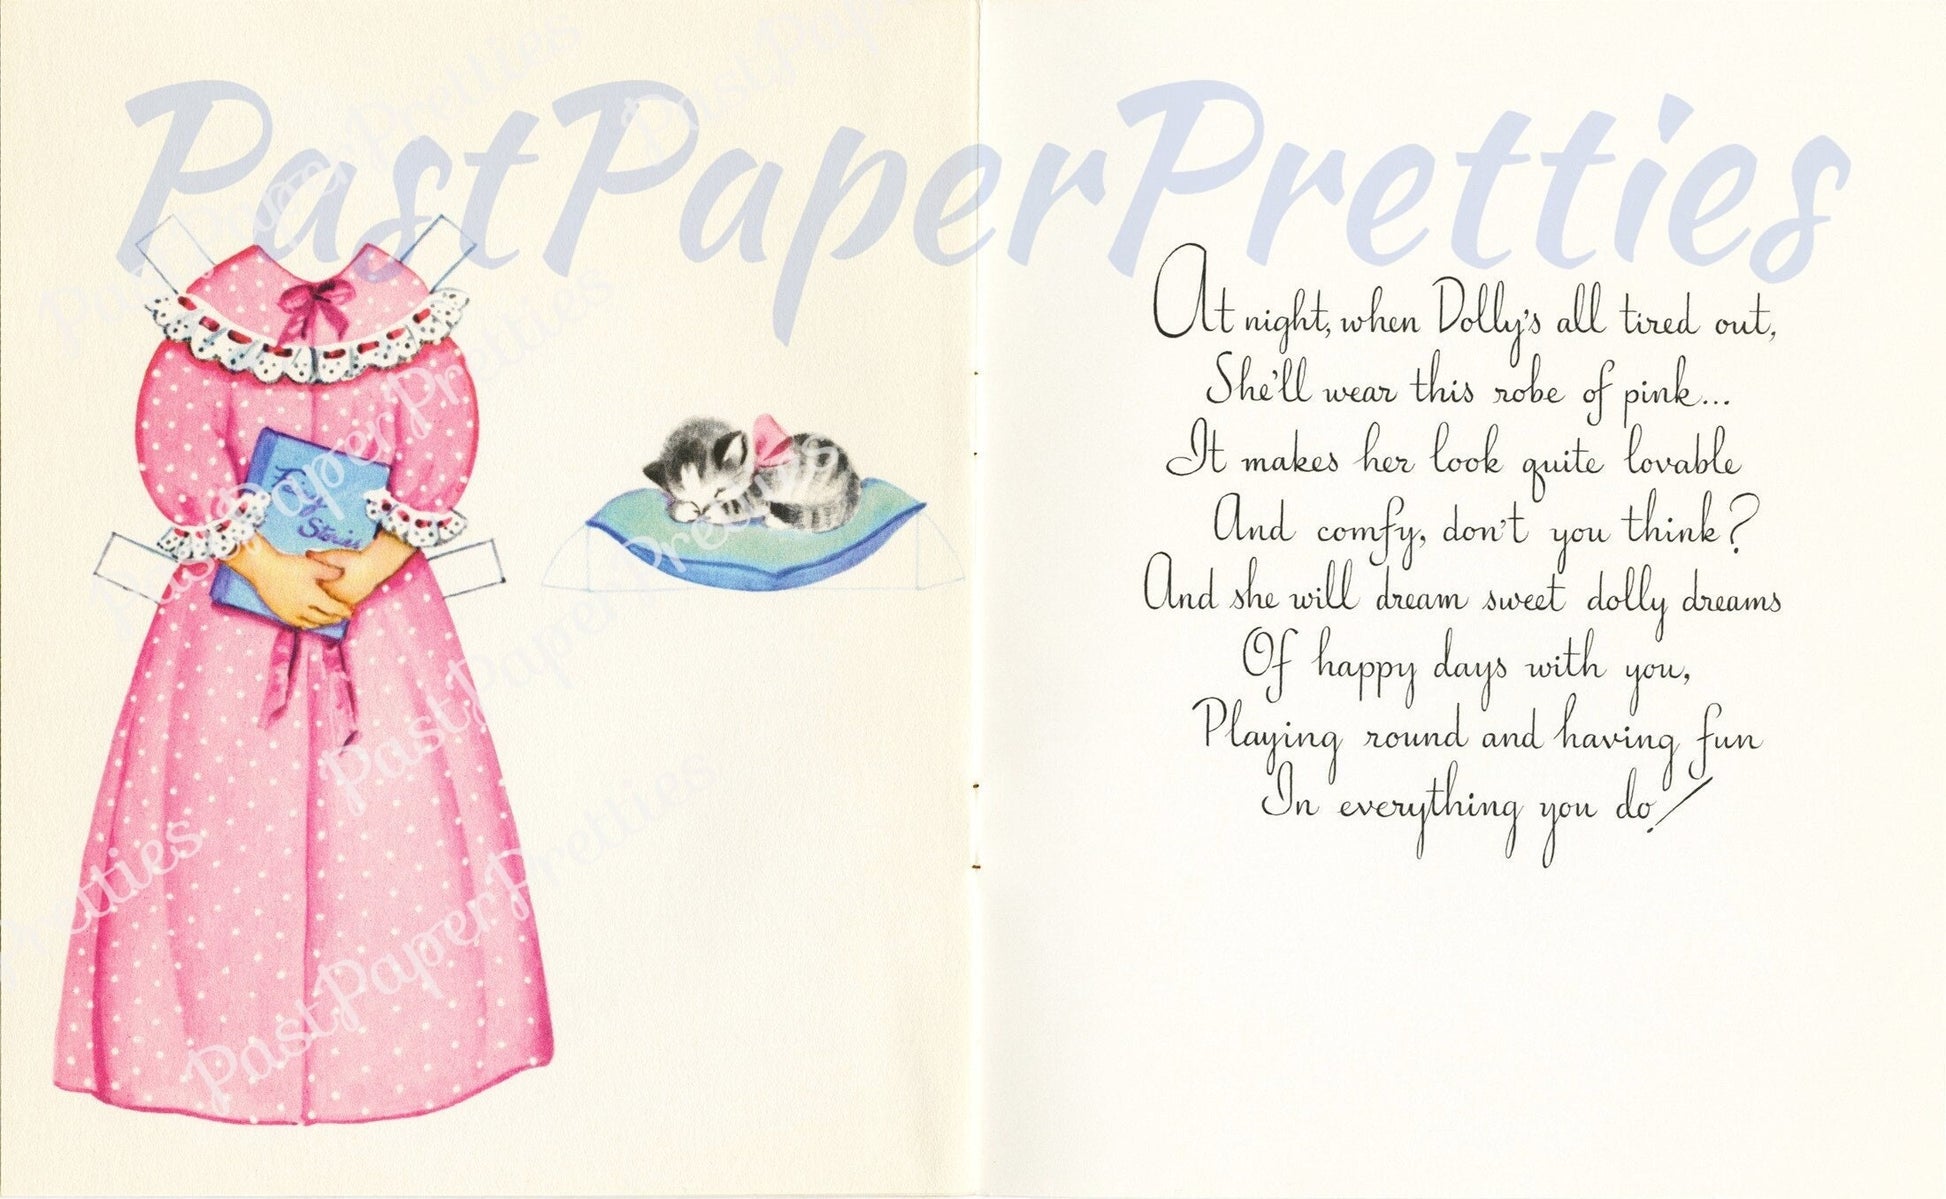 PastPaperPretties
Fairy
Stories
At night, when Dolly's all tired out,
She'll wear this robe of pink...
It makes her look quite lovable
And comfy, don't you think?
And she will dream sweet dolly dreams
Of happy days with you,
Playing round and having fun
In everything you do!
PastPaperPretties
PastPaperPretties
PastPaperPretties
PastPaperPretties
PastPaperPretties